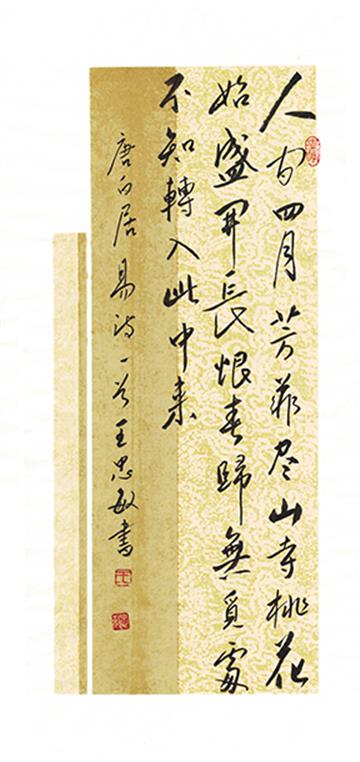 人间四月芳菲尽山寺桃花
始盛開長恨春歸無覓處
不知轉入此中来
唐白居易诗一首王忠敏書